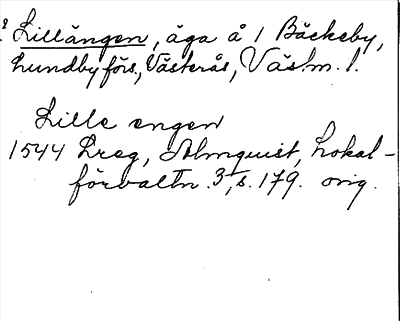 ? Lillängen, äga å 1 Bäckeby,
Lundby förs., Västerås, Västm. l.
Lille engen
1544 Lreg, Almquist, Lokal-
förvaltn. 3, s. 179. orig.